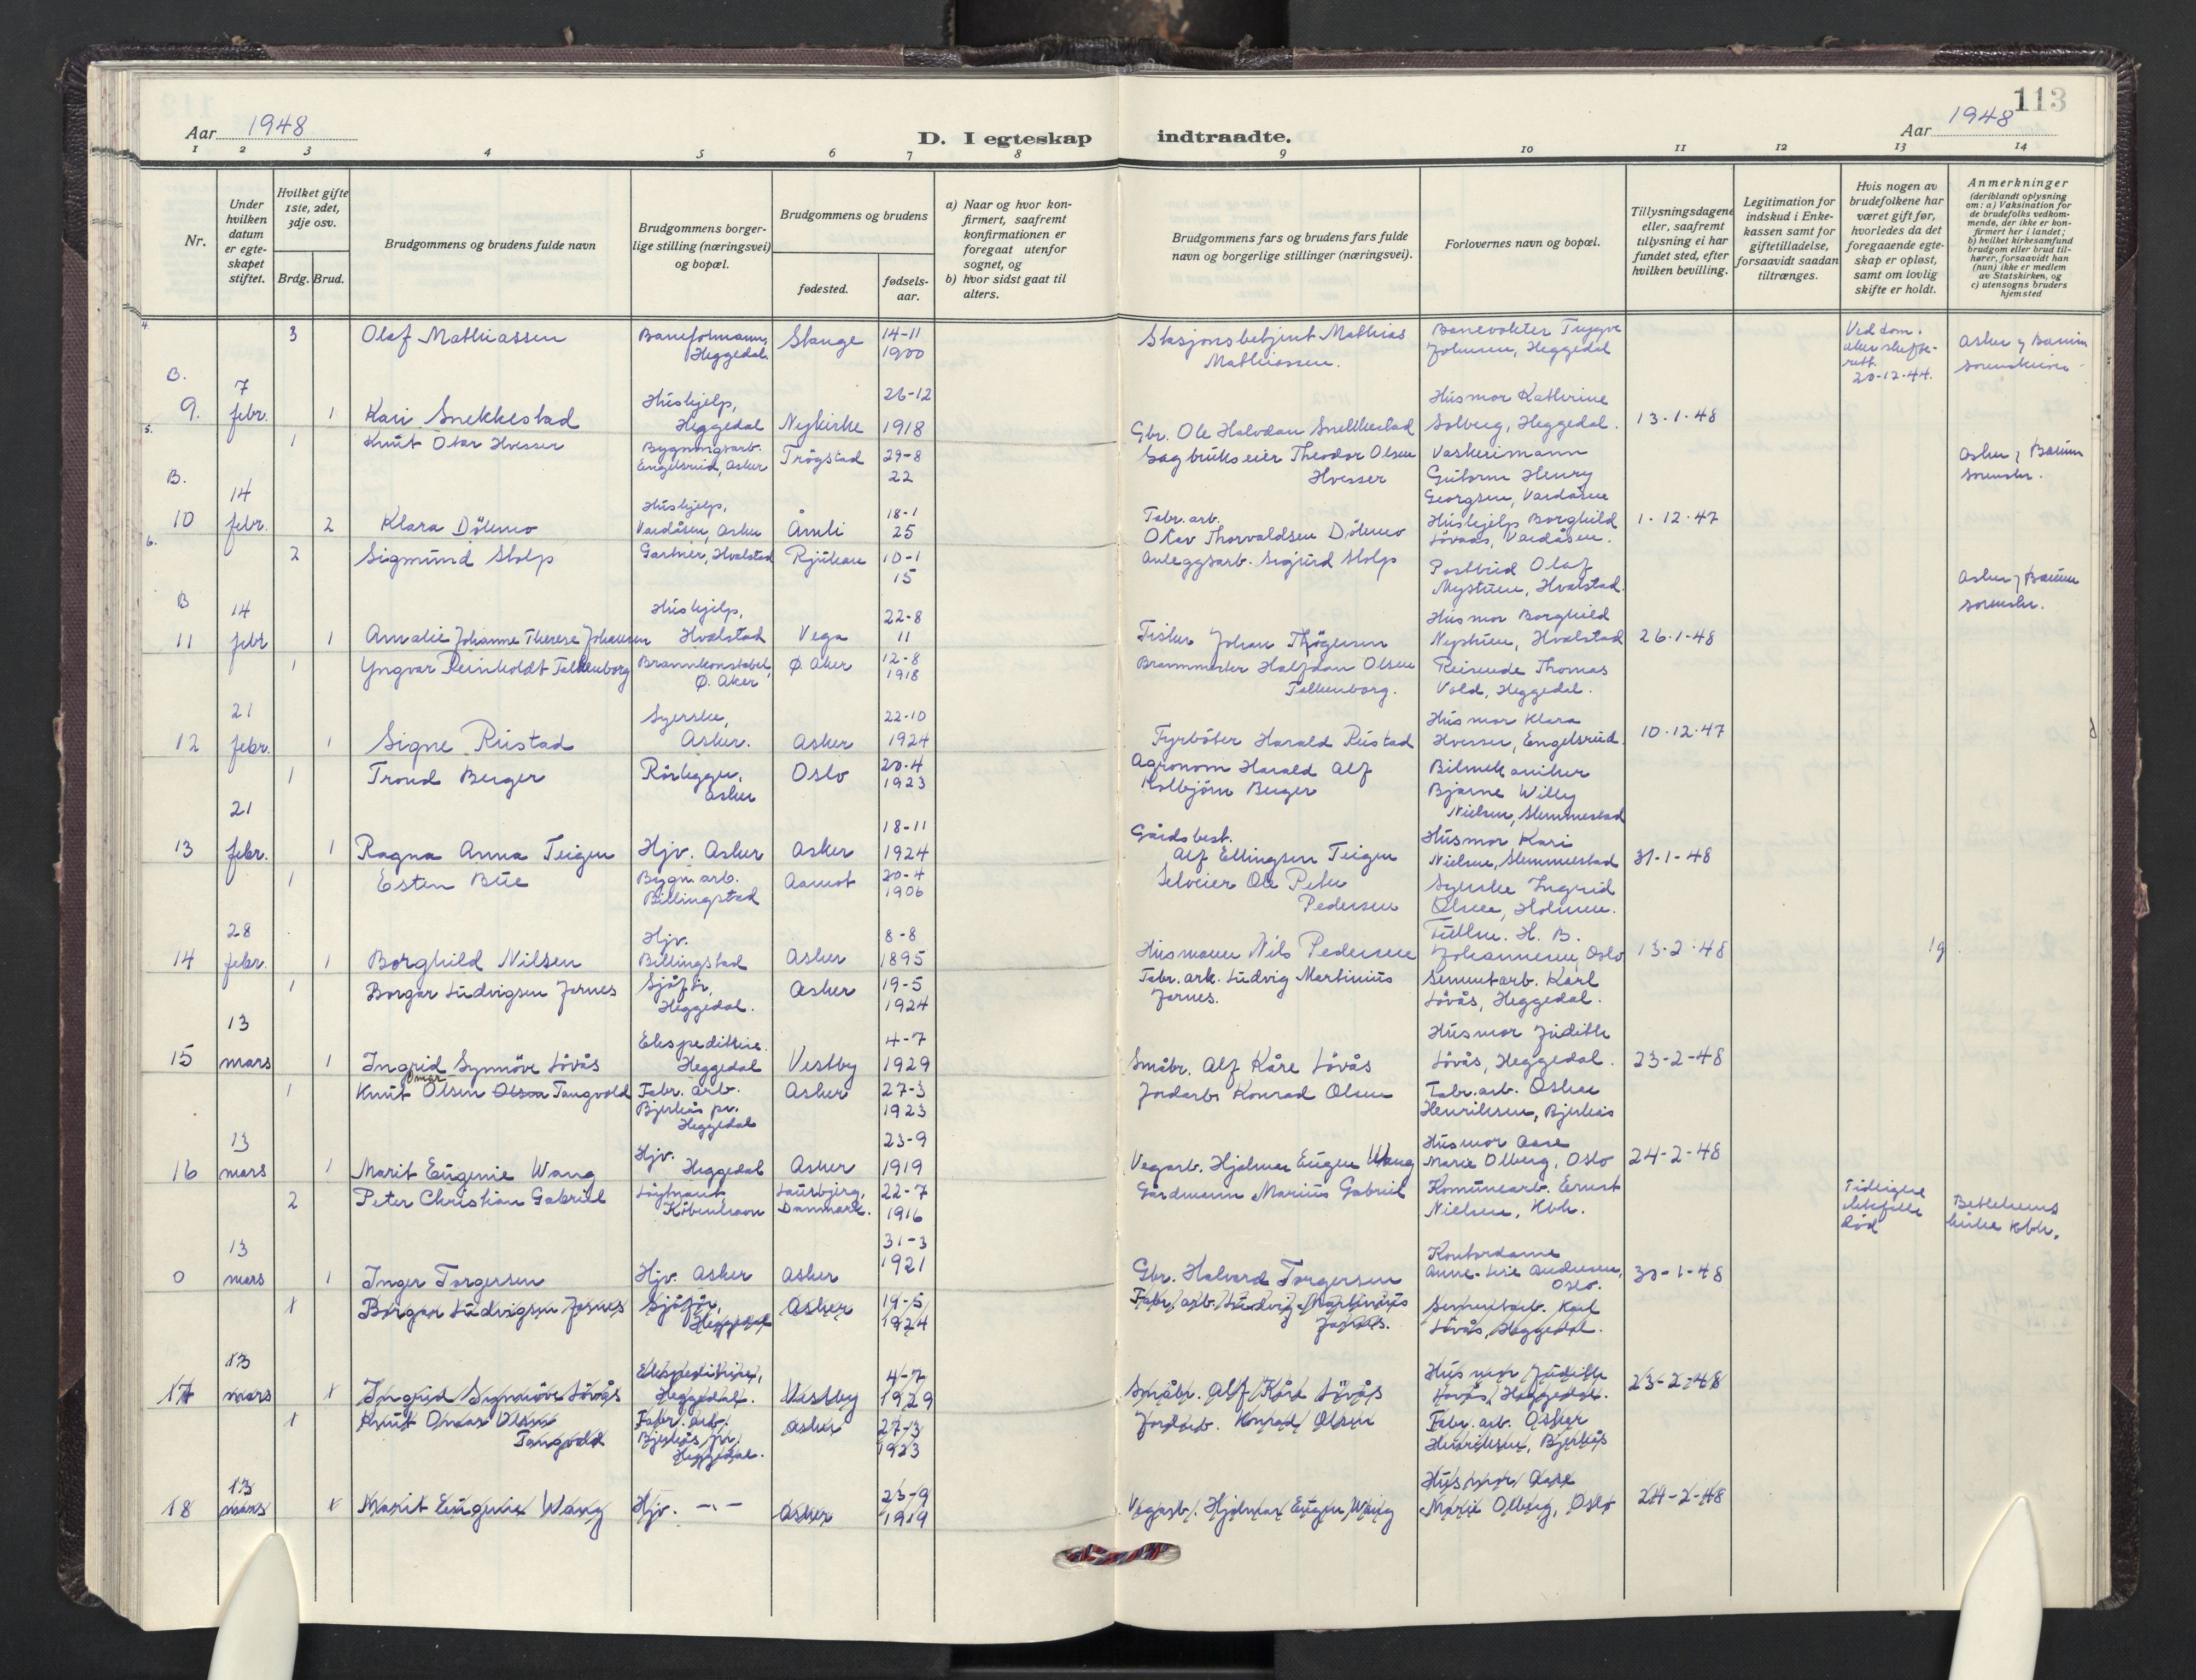 113
Aar 1948
D. I egteskap indtraadte.
Aar 1948
1 2 3 4 5 6 7 8 9 10 11 12 13 14
Nr.
Under hvilken datum er egte-skapet stiftet.
Hvilket gifte 1ste, 2det, 3dje osv.
Brdg. Brud.
Brudgommens og brudens fulde navn
Brudgommens borger-lige stilling (næringsvei) og bopæl.
Brudgommens og brudens
fødested.
fødsels-aar.
a) Naar og hvor kon-firmert, saafremt konfirmationen er foregaat utenfor sognet, og
b) hvor sidst gaat til alters.
Brudgommens fars og brudens fars fulde navn og borgerlige stillinger (næringsvei).
Forlovernes navn og bopæl.
Tillysningsdagene eller, saafremt tillysning ei har fundet sted, efter hvilken bevilling.
Legitimation for indskud i Enke-kassen samt for giftetilladelse, forsaavidt saadan tiltrænges.
Hvis nogen av brudefolkene har været gift før, hvorledes da det foregaaende egte-skap er opløst, samt om lovlig skifte er holdt.
Anmerkninger (deriblandt oplysning om: a) Vaksination for de brudefolks vedkom-mende, der ikke er kon-firmert her i landet; b) hvilket kirkesamfund brudgom eller brud til-hører, forsaavidt han (hun) ikke er medlem av Statskirken, og c) utensogns bruders hjemsted
4. 3 Olaf Mathiassen Baneformann, Heggedal. Stange 14-11 1900 Stasjonsbetjent Mathias Mathiassen. Banevokter Trygve Johnsen, Heggedal Ved dom. 20-12-44. Asker og Bærum
B. 9. 7 febr. 1 Kari Snekkestad Hushjelp, Heggedal Nykirke 26-12 1918 Gbr. Ole Halvdan Snekkestad Husmor Kathrine Solberg, Heggedal. 13-1-48
5. 1 Knut Otar Hvesser Bygningsarb. Engelsrud, Asker Trøgstad 29-8 22 Sagbrukseier Theodor Olsen Hvesser Vaskerimann Guttorm Henry Georgsen, Vardåsen Asker og Bærum sorenskr.
B. 10 14 febr. 2 Klara Dölemo Hushjelp, Vardåsen, Asker Åmli 18-1 25 Fabr. arb. Olav Thorvaldsen Dölemo Hushjelp Borghild Lövaas, Vardåsen. 1-12-47
6. 2 Sigmund Stolp Gartner, Hvalstad Rjukan 10-1 15 Anleggsarb. Sigurd Stolp Postbud Olaf Nystuen, Hvalstad. Asker og Bærum sorenskr.
B 11 14 febr 1 Amalie Johanne Therese Johansen Hushjelp, Hvalstad Vega 22-8 11 Fisker Johan Thögersen Husmor Borghild Nystuen, Hvalstad 26-1-48
1 Yngvar Reinholdt Falkenborg Brannkonstabel, Ø. Aker Ø. Aker 12-8 1918 Brannmester Halfdan Olsen Falkenborg. Reisende Thomas Vold, Heggedal.
12 21 febr. 1 Signe Rustad Syerske, Asker. Asker 22-10 1924 Fyrböter Harald Rustad Husmor Klara Hvesser, Engelsrud. 10-12-47
1 Trond Berger Rörlegger, Asker Oslo 20-4 1923 Agronom Harald Alf Kolbjörn Berger Bilmekaniker Bjarne Willy Nielsen, Slemmestad
13 21 febr. 1 Ragna Anna Teigen Hjv. Asker Asker 18-11 1924 Gårdsbest. Alf Ellingsen Teigen Husmor Kari Nielsen, Slemmestad 31-1-48
1 Esten Bue Bygn. arb. Billingstad Aamot 20-4 1906 Selveier Ole Peter Pedersen Syerske Ingrid Olsen, Holmen.
14 28 febr. 1 Borghild Nilsen Hjv. Billingstad Asker 8-8 1895 Husmann Nils Pedersen H. B. Johannesen, Oslo 13-2-48 19
1 Borgar Ludvigsen Jarnes Sjåför, Heggedal. Asker 19-5 1924 Fabr. arb. Ludvig Martinius Jarnes. Sementarb. Karl Lövås, Heggedal.
15 13 mars 1 Ingrid Synnöve Lövås Ekspeditrise. Heggedal Vestby 4-7 1929 Småbr. Alf Kåre Lövås Husmor Judithe Lövås, Heggedal. 23-2-48
1 Knut Omar Olsen Olsen Tangvold Fabr. arb. Bjerkås pr. Heggedal Asker 27-3 1923 Jordarb. Konrad Olsen Fabr. arb. Oskar Henriksen, Bjerkås
16 13 mars 1 Marit Eugenie Wang Hjv. Heggedal Asker 23-9 1919 Vegarb. Hjalmar Eugen Wang Husmor Aase Marie Olberg, Oslo 24-2-48
2 Peter Christian Gabriel Löytnant, København Laurbjerg, Danmark. 22-7 1916 Gårdmann Marius Gabriel Komunearb. Ernst Nielsen, Kbh. Tidligere ektefelle död Bethlehems kirke Kbh.
0 13 mars 1 Inger Torgersen Hjv. Asker Asker 31-3 1921 Gbr. Halvard Torgersen Kontordame Anne-Lise Andresen, Oslo. 30-1-48
1 Borgar Ludvigsen Jarnes Sjåför, Heggedal Asker 19-5 1924 Fabr. arb. Ludvig Martinius Jarnes. Sementarb. Karl Lövås, Heggedal.
17 13 mars 1 Ingrid Synnöve Lövås Ekspeditrise, Heggedal. Vestby 4-7 1929 Småbr. Alf Kåre Lövås Husmor Judithe Lövås, Heggedal. 23-2-48
1 Knut Omar Olsen Tangvold Fabr. arb. Bjerkås pr. Heggedal. Asker 27-3 1923 Jordarb. Konrad Olsen Fabr. arb. Oskar Henriksen, Bjerkås
18 13 mars 1 Marit Eugenie Wang Hjv. -"- Asker 23-9 1919 Vegarb. Hjalmar Eugen Wang Husmor Aase Marie Olberg, Oslo 24-2-48